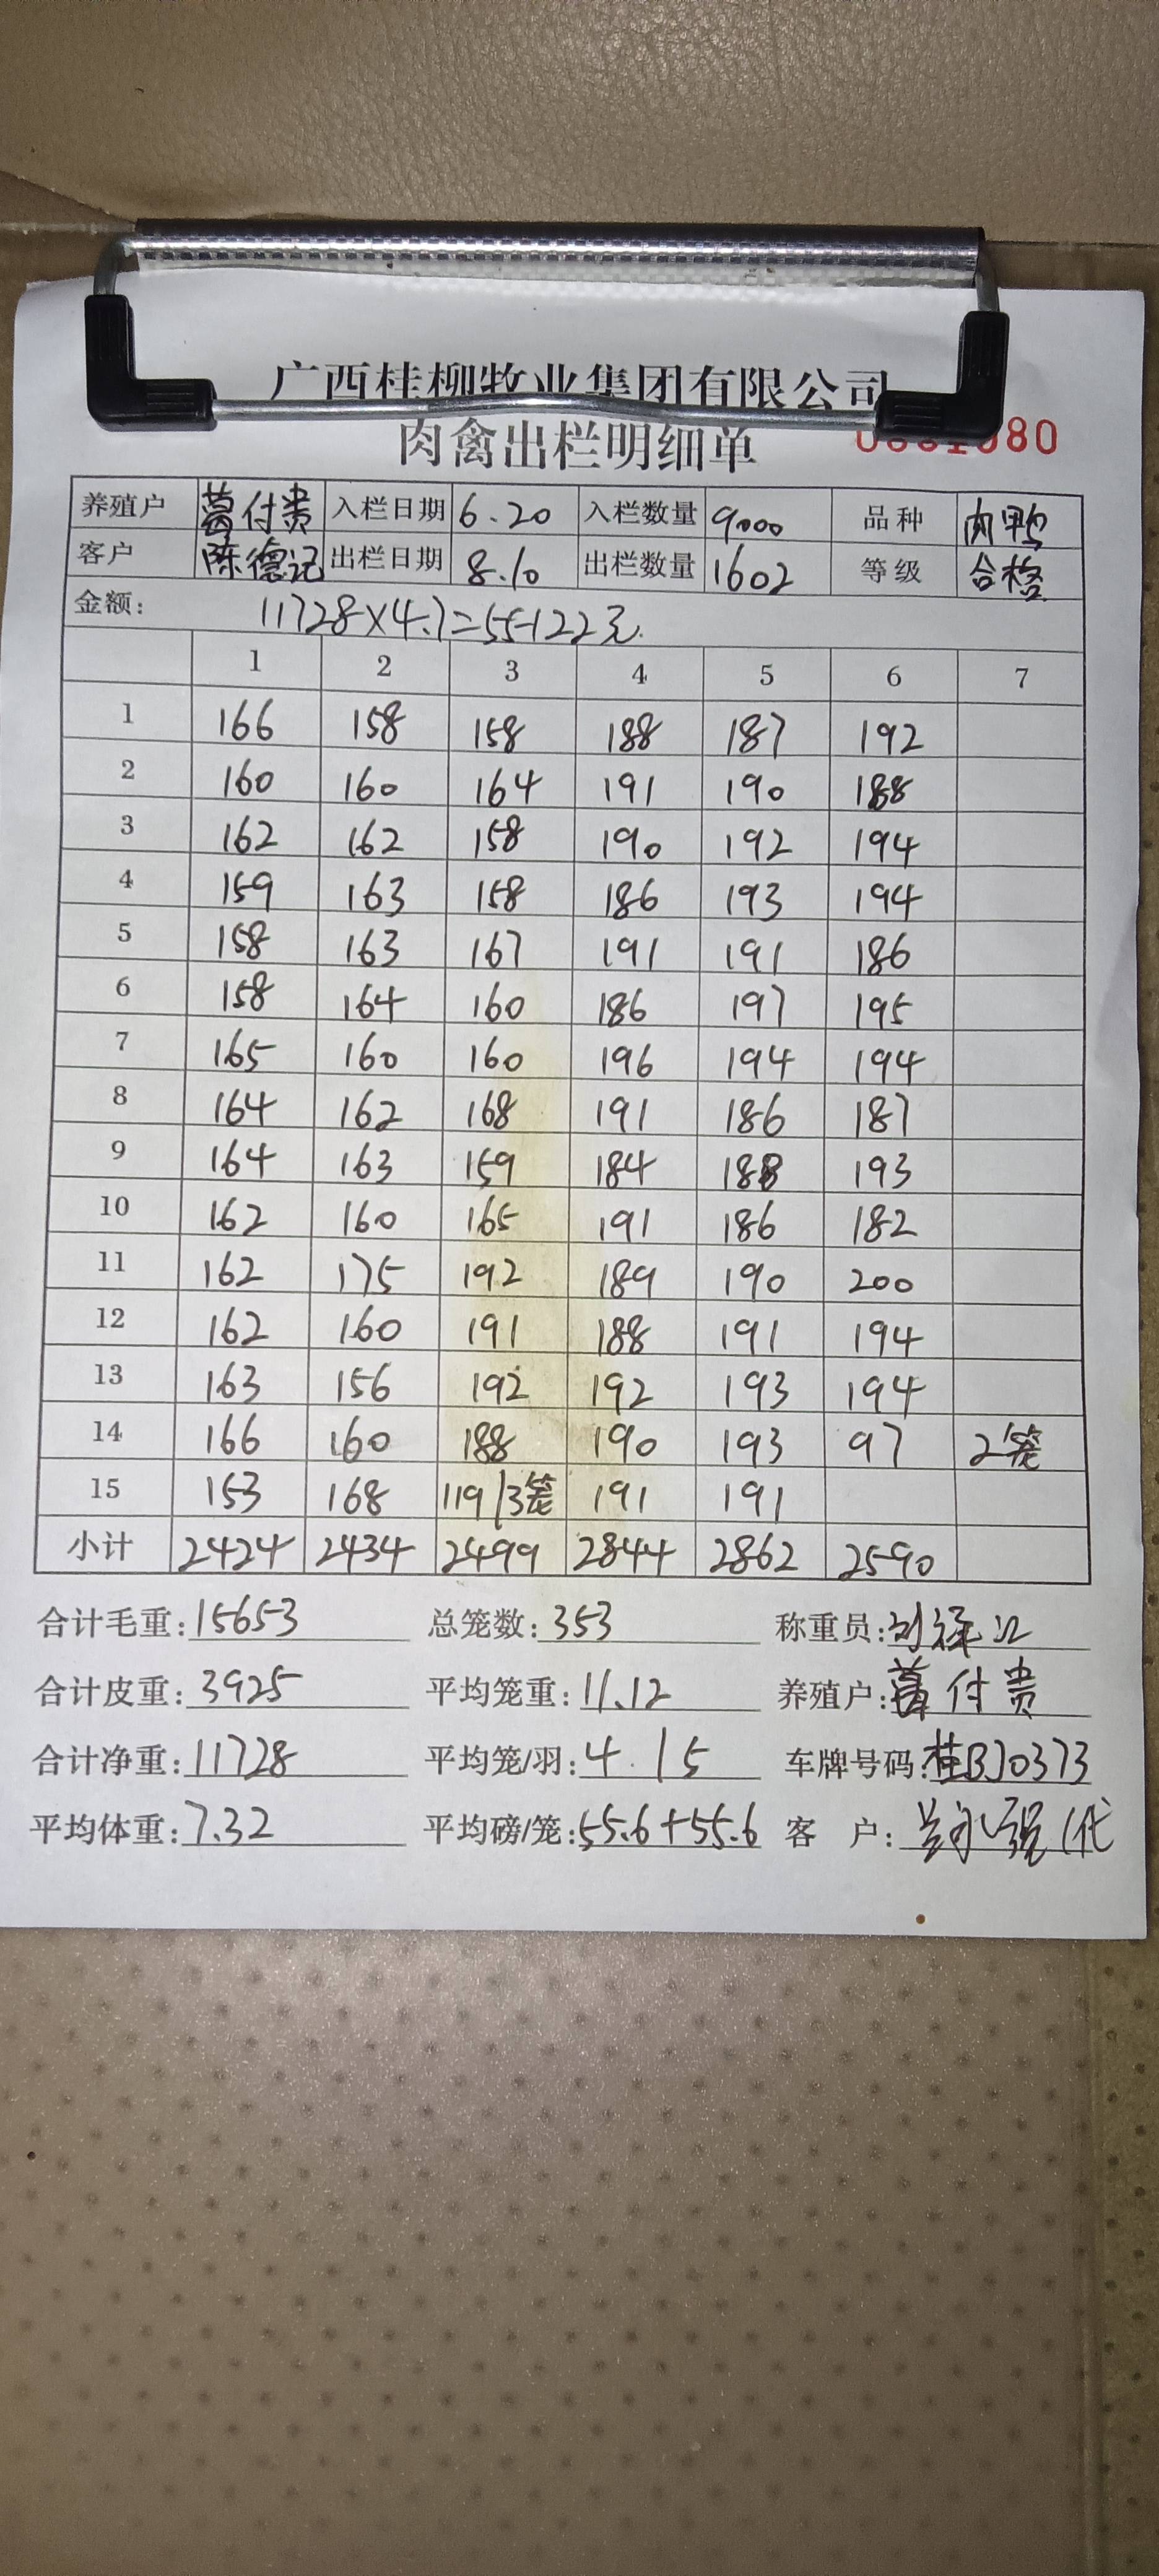 广西桂柳牧业集团有限公司
肉禽出栏明细单 080
养殖户 葛付贵 入栏日期 6.20 入栏数量 9000 品种 肉鸭
客户 陈德记 出栏日期 8.10 出栏数量 1602 等级 合格
金额: 11728×4.7=55122元.
1 2 3 4 5 6 7
1 166 158 158 188 187 192
2 160 160 164 191 190 188
3 162 162 158 190 192 194
4 159 163 158 186 193 194
5 158 163 167 191 191 186
6 158 164 160 186 197 195
7 165 160 160 196 194 194
8 164 162 168 191 186 187
9 164 163 159 184 188 193
10 162 160 165 191 186 182
11 162 175 192 189 190 200
12 162 160 191 188 191 194
13 163 156 192 192 193 194
14 166 160 188 190 193 97 2笼
15 153 168 119/3笼 191 191
小计 2424 2434 2499 2844 2862 2590
合计毛重: 15653 总笼数: 353 称重员:
合计皮重: 3925 平均笼重: 11.12 养殖户: 葛付贵
合计净重: 11728 平均笼/羽: 4.15 车牌号码: 桂BJ0373
平均体重: 7.32 平均磅/笼: 55.6+55.6 客 户: